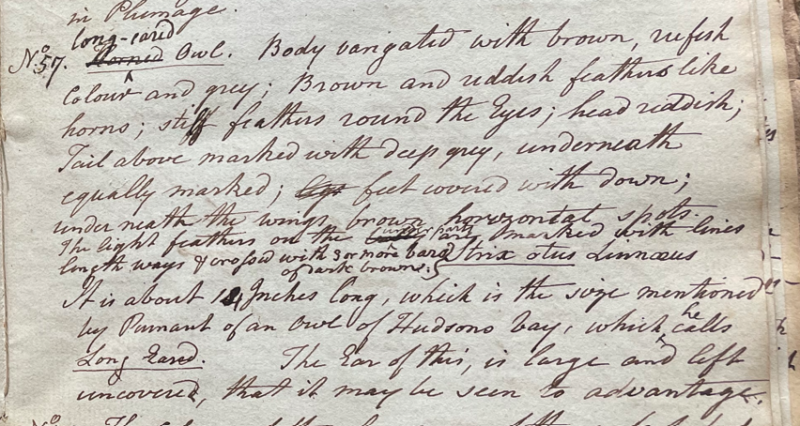 in Plumage.
long-eared
No 57. Horned Owl. Body varigated with brown, redish
Colour and grey; Brown and reddish feathers like
horns; stiff feathers round the Eyes; head reddish;
Tail above marked with deep grey, underneath
equally marked; feet covered with down;
underneath the wings brown horozontal spots.
The light feathers on the under part are marked with lines
length ways & crossed with 3 or more bars Strix otus Linnæus
of dark brown.
It is about 14 Inches long, which is the size mentioned
by Pennant of an Owl of Hudsons bay, which he calls
Long Eared. The Ear of this, is large and left
uncovered, that it may be seen to advantage.